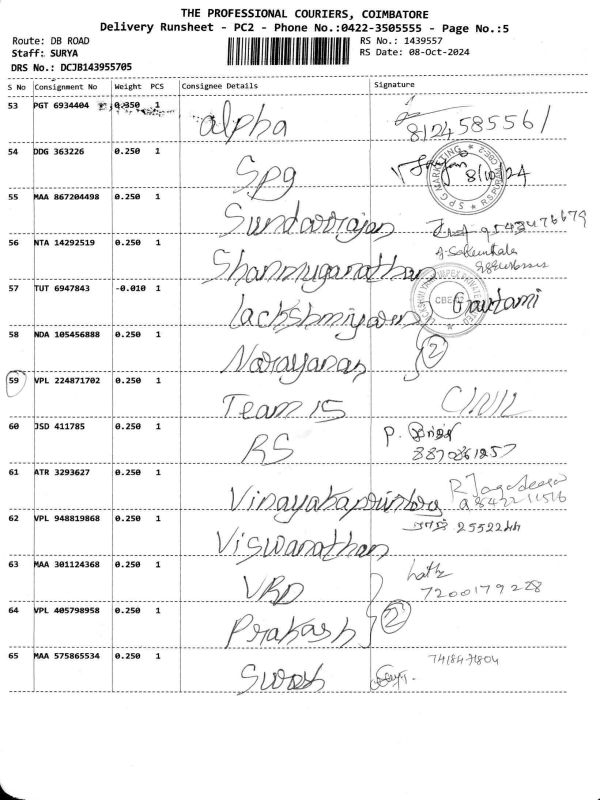 THE PROFESSIONAL COURIERS, COIMBATORE
Delivery Runsheet - PC2 - Phone No.:0422-3505555 - Page No.:5
Route: DB ROAD RS No.: 1439557
Staff: SURYA RS Date: 08-Oct-2024
DRS No.: DCJB143955705
S No Consignment No Weight PCS Consignee Details Signature
53 PGT 6934404 0.350 1 alpha 8124585561
54 DDG 363226 0.250 1 Spg 8/10/24
SPG MARKETING
55 MAA 867204498 0.250 1 Sundarrajan 9543476679
56 NTA 14292519 0.250 1 Shanmuganathan
57 TUT 6947843 -0.010 1 lackshmiyarn Gowtami
58 NDA 105456888 0.250 1 Narayanan 2
59 VPL 224871702 0.250 1 Team 15 CIVIL
60 JSD 411785 0.250 1 RS P.
8870861257
61 ATR 3293627 0.250 1 Vinayakaprinters
62 VPL 948819868 0.250 1 Viswanathan 2552244
63 MAA 301124368 0.250 1 VRD
7200179228
64 VPL 405798958 0.250 1 Prakash 2
65 MAA 575865534 0.250 1 Suresh